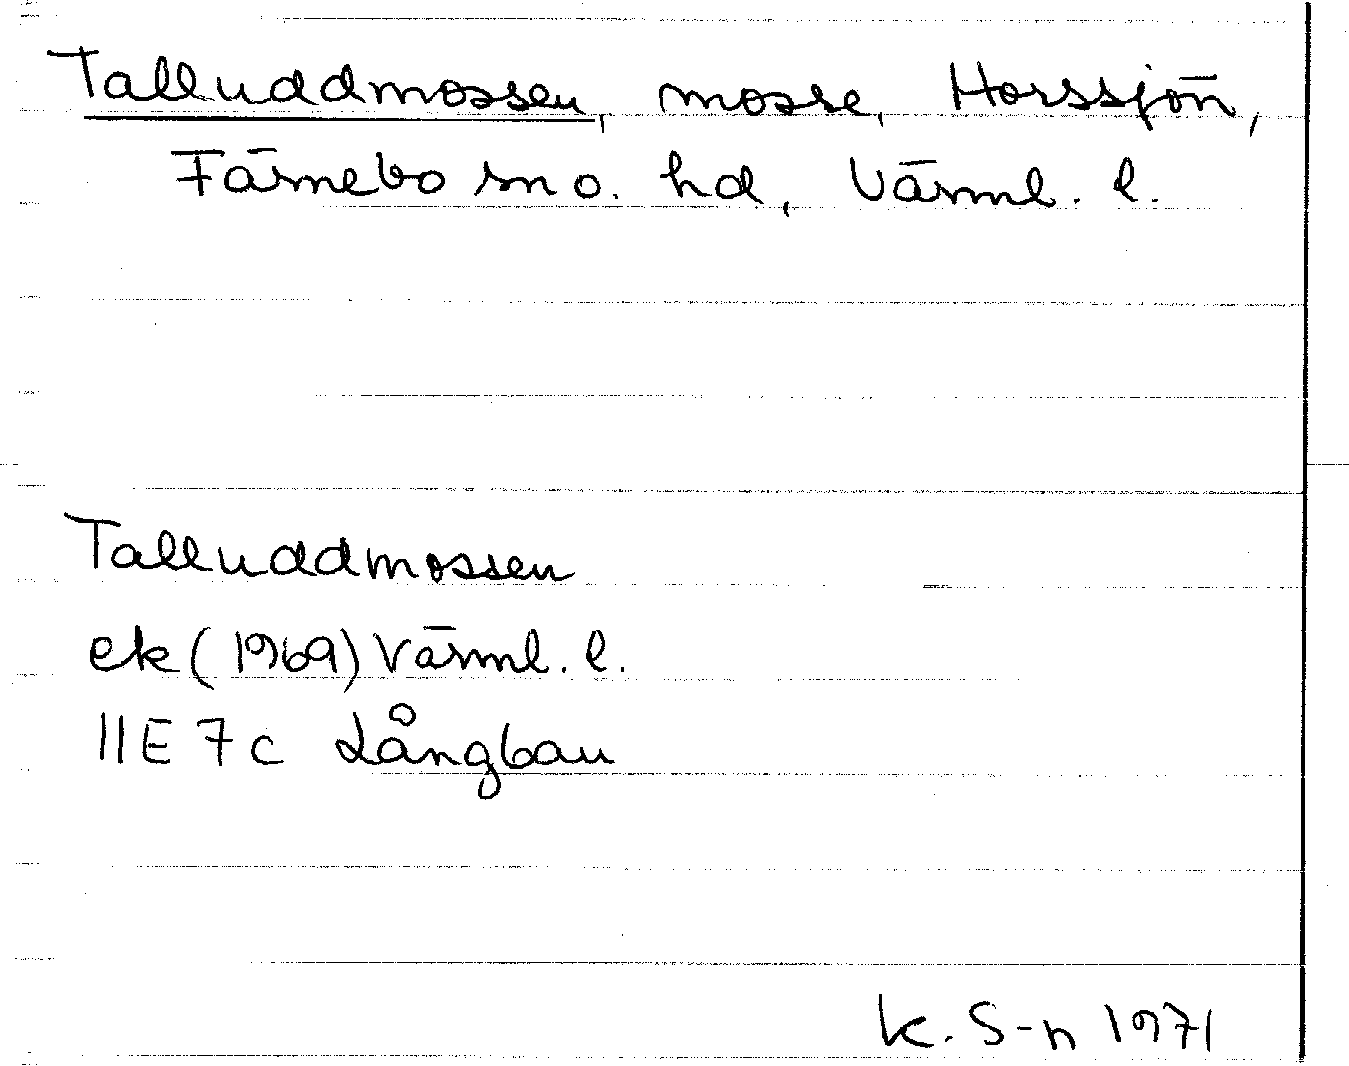 Talluddmossen, mosse, Horssjön,
Färnebo sn o. hd, Värml. l.
Talluddmossen
ek (1969) Värml. l.
11E 7c Långban
K. S-n 1971